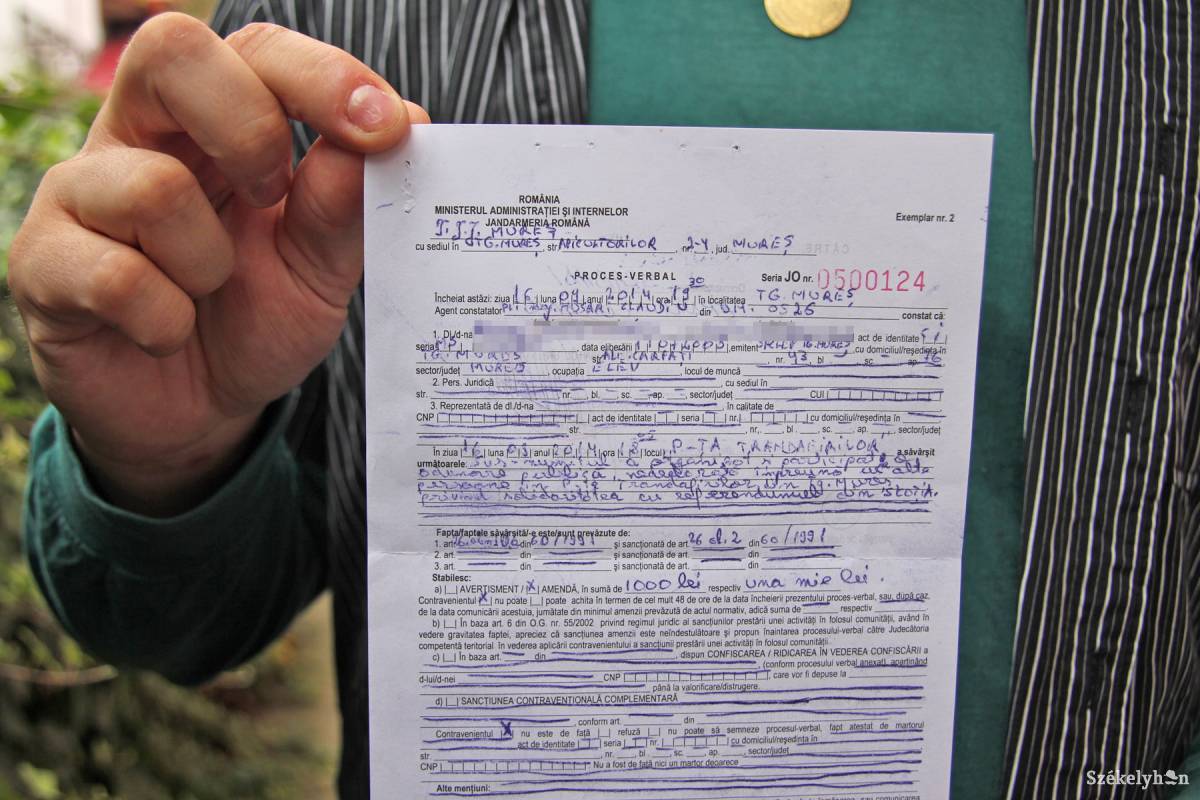 ROMÂNIA
MINISTERUL ADMINISTRAŢIEI ŞI INTERNELOR
JANDARMERIA ROMÂNĂ
Exemplar nr. 2
I.J.J. MUREŞ
cu sediul în TG. MUREŞ, str. APICULTORILOR nr. 2-4, jud. MUREŞ
PROCES-VERBAL Seria JO nr. 0500124
Încheiat astăzi: ziua 16 luna 04 anul 2014 ora 13 30 în localitatea TG. MUREŞ
Agent constatator CLAUDIU din U.M. 0526 constat că:
1. Dl/d-na act de identitate CI
seria MP data eliberării emitent TG. MUREŞ cu domiciliul/reşedinţa în
TG. MUREŞ str. AL. CARPAŢI nr. 43, bl. - sc. - ap. 16
sector/judeţ MUREŞ, ocupaţia ELEV, locul de muncă
2. Pers. Juridică , cu sediul în
str. nr. bl. sc. ap. , sector/judeţ CUI
3. Reprezentată de dl./d-na , în calitate de
CNP act de identitate seria nr. cu domiciliul/reşedinţa în
str. nr. , bl. , sc. ap. , sector/judeţ
În ziua 16 03 2014 locul P-ŢA TRANDAFIRILOR a săvârşit
următoarele Sus-numitul a participat
publică, împreună cu alte
persoane în P-ţa Trandafirilor din Tg. Mureş
privind solidaritatea cu referendumul din
Fapta/faptele săvârşită/-e este/sunt prevăzute de:
1. art. din 60/1991 şi sancţionată de art. 26 al. 2 din 60/1991
2. art. din şi sancţionată de art. din
3. art. din şi sancţionată de art. din
Stabilesc:
a) |_| AVERTISMENT / |X| AMENDĂ, în sumă de 1000 lei respectiv una mie lei.
Contravenientul |X| nu poate |_| poate achita în termen de cel mult 48 de ore de la data încheierii prezentului proces-verbal, sau, după caz,
de la data comunicării acestuia, jumătate din minimul amenzii prevăzută de actul normativ, adică suma de respectiv
b) |_| În baza art. 6 din O.G. nr. 55/2002 privind regimul juridic al sancţiunilor prestării unei activităţi în folosul comunităţii, având în
vedere gravitatea faptei, apreciez că sancţiunea amenzii este neîndestulătoare şi propun înaintarea procesului-verbal către Judecătoria
competentă teritorial în vederea aplicării contravenientului a sancţiunii prestării unei activităţi în folosul comunităţii.
c) |_| În baza art. din , dispun CONFISCAREA / RIDICAREA ÎN VEDEREA CONFISCĂRII a
, (conform procesului verbal anexat), aparţinând
d-lui/d-nei CNP , care vor fi depuse la
, până la valorificare/distrugere.
d) |_| SANCŢIUNEA CONTRAVENŢIONALĂ COMPLEMENTARĂ
, conform art. din
Contravenientul |X| nu este de faţă |_| refuză |_| nu poate să semneze procesul-verbal, fapt atestat de martorul
act de identitate seria nr. cu domiciliul/reşedinţa în
str. nr. bl. sc. ap. , sector/judeţ
CNP Nu a fost de faţă nici un martor deoarece
Alte menţiuni:
Székelyhon